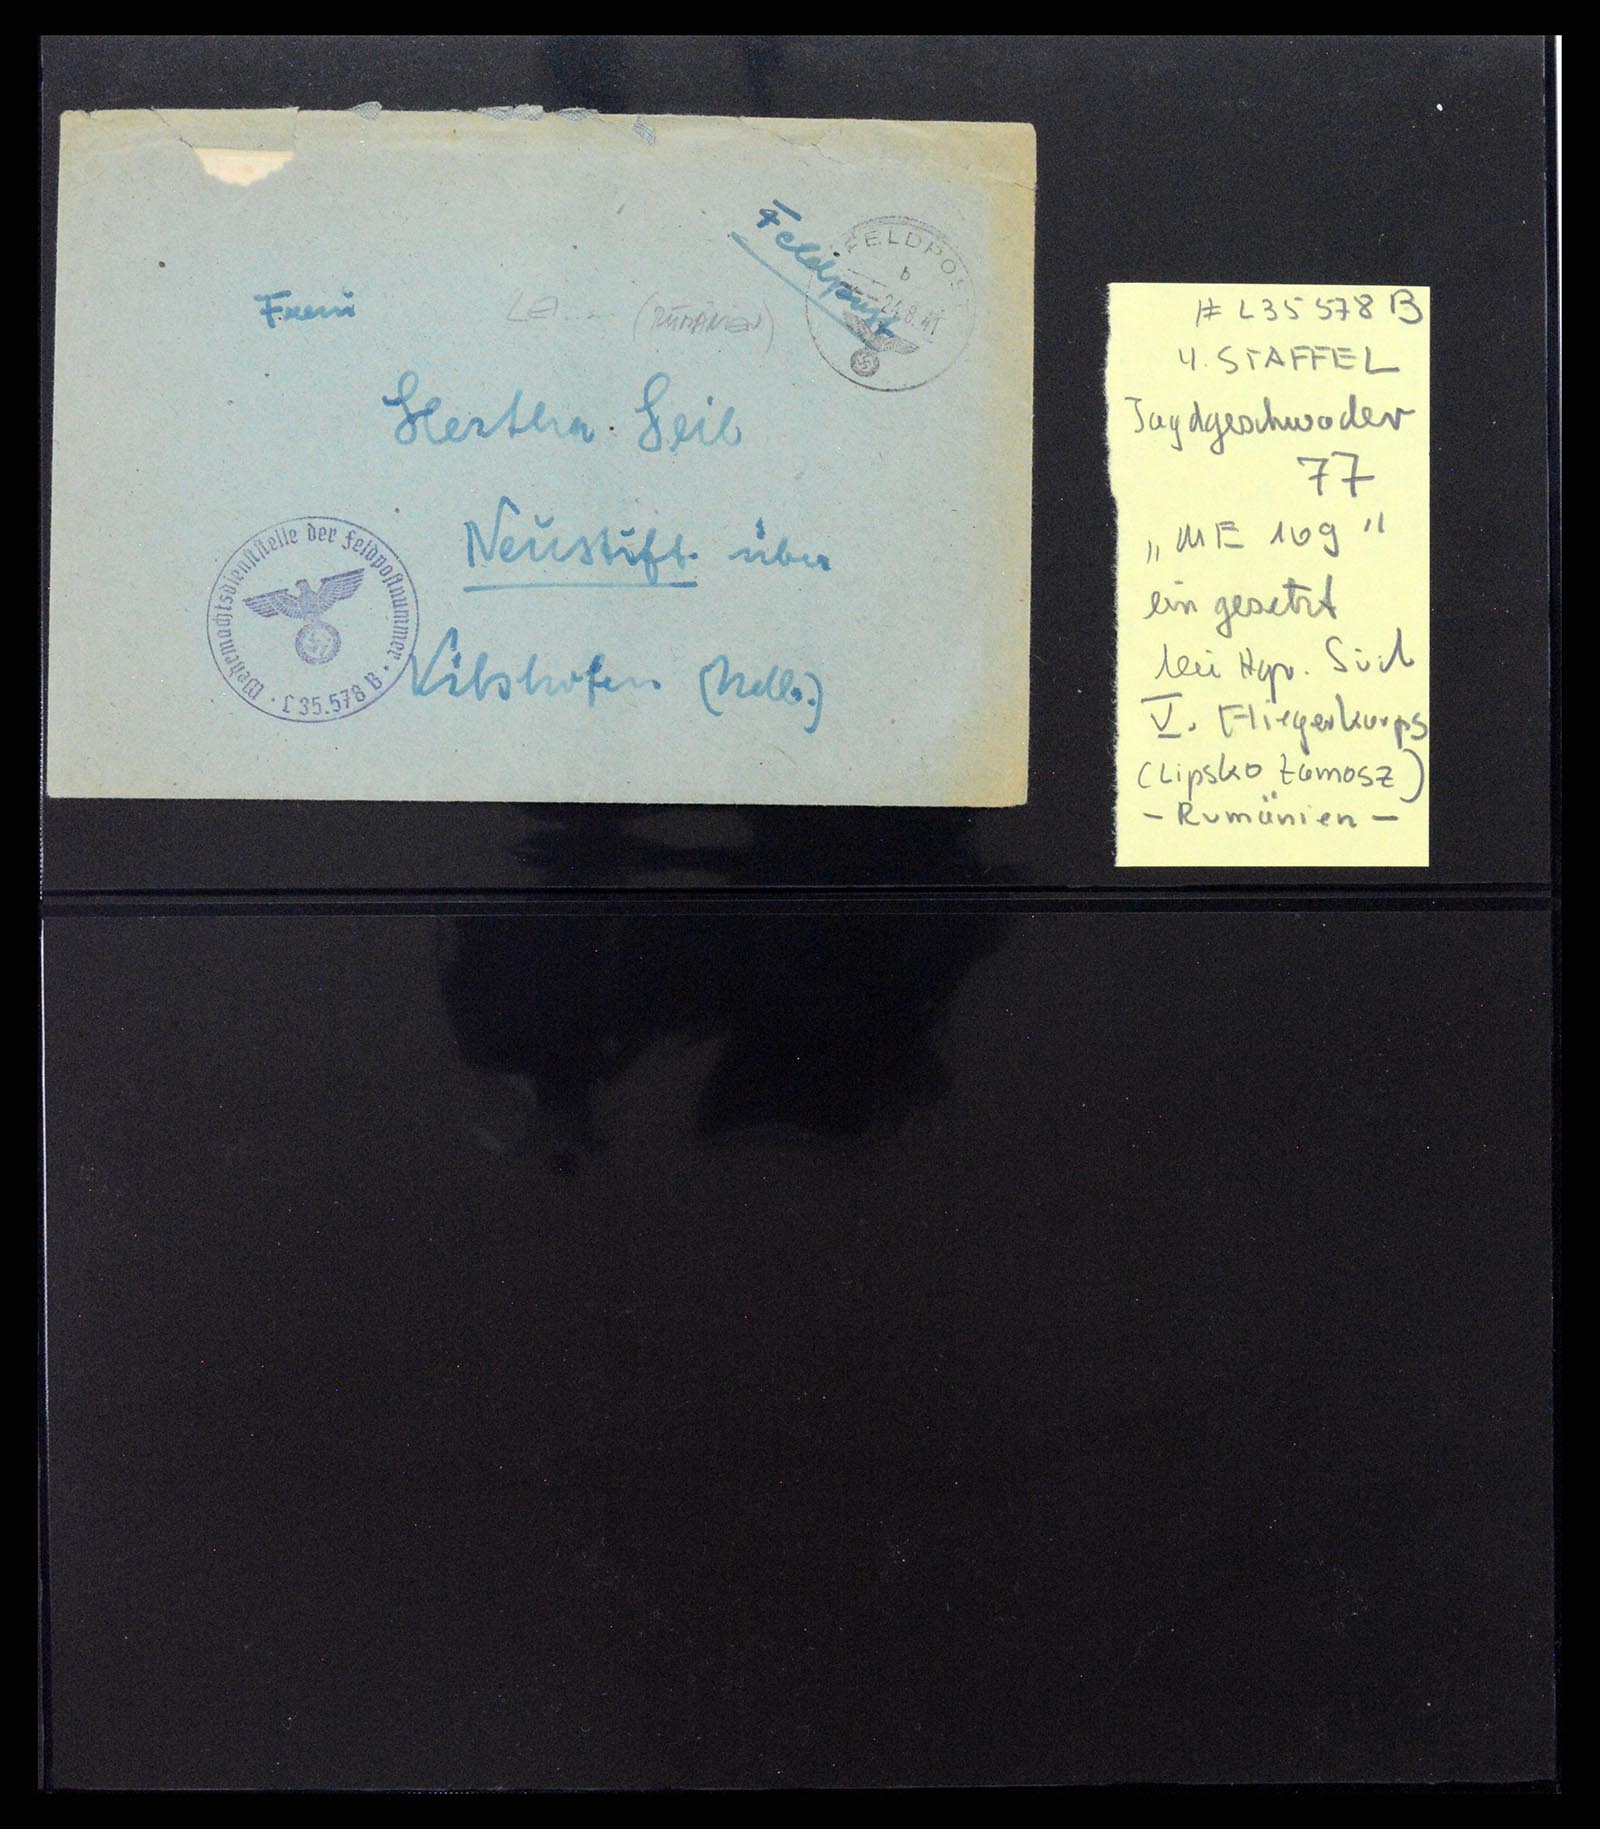 Feldpost
FELDPOS
b
24.8.41
Frau
(RUMÄNIEN)
Hertha Geib
Neustift über
Vilshofen (Ndb.)
Wehrmachtsdienststelle der Feldpostnummer
L 35.578 B
# L35 578 B
4. STAFFEL
Jagdgeschwader
77
„ME 109"
ein gesetzt
bei Hgr. Süd
V. Fliegerkorps
(Lipsko Zamosz)
- Rumänien -